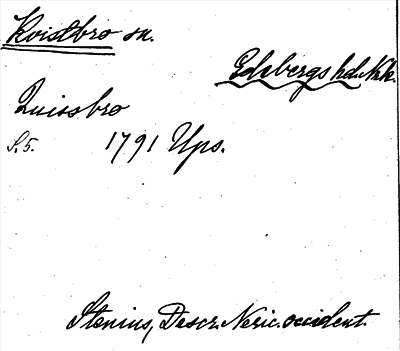 Kvistbro sn.
Edsbergs hd. Nrk.
Quissbro
S. 5. 1791 Ups.
Stenius, Descr. Neric. occident.